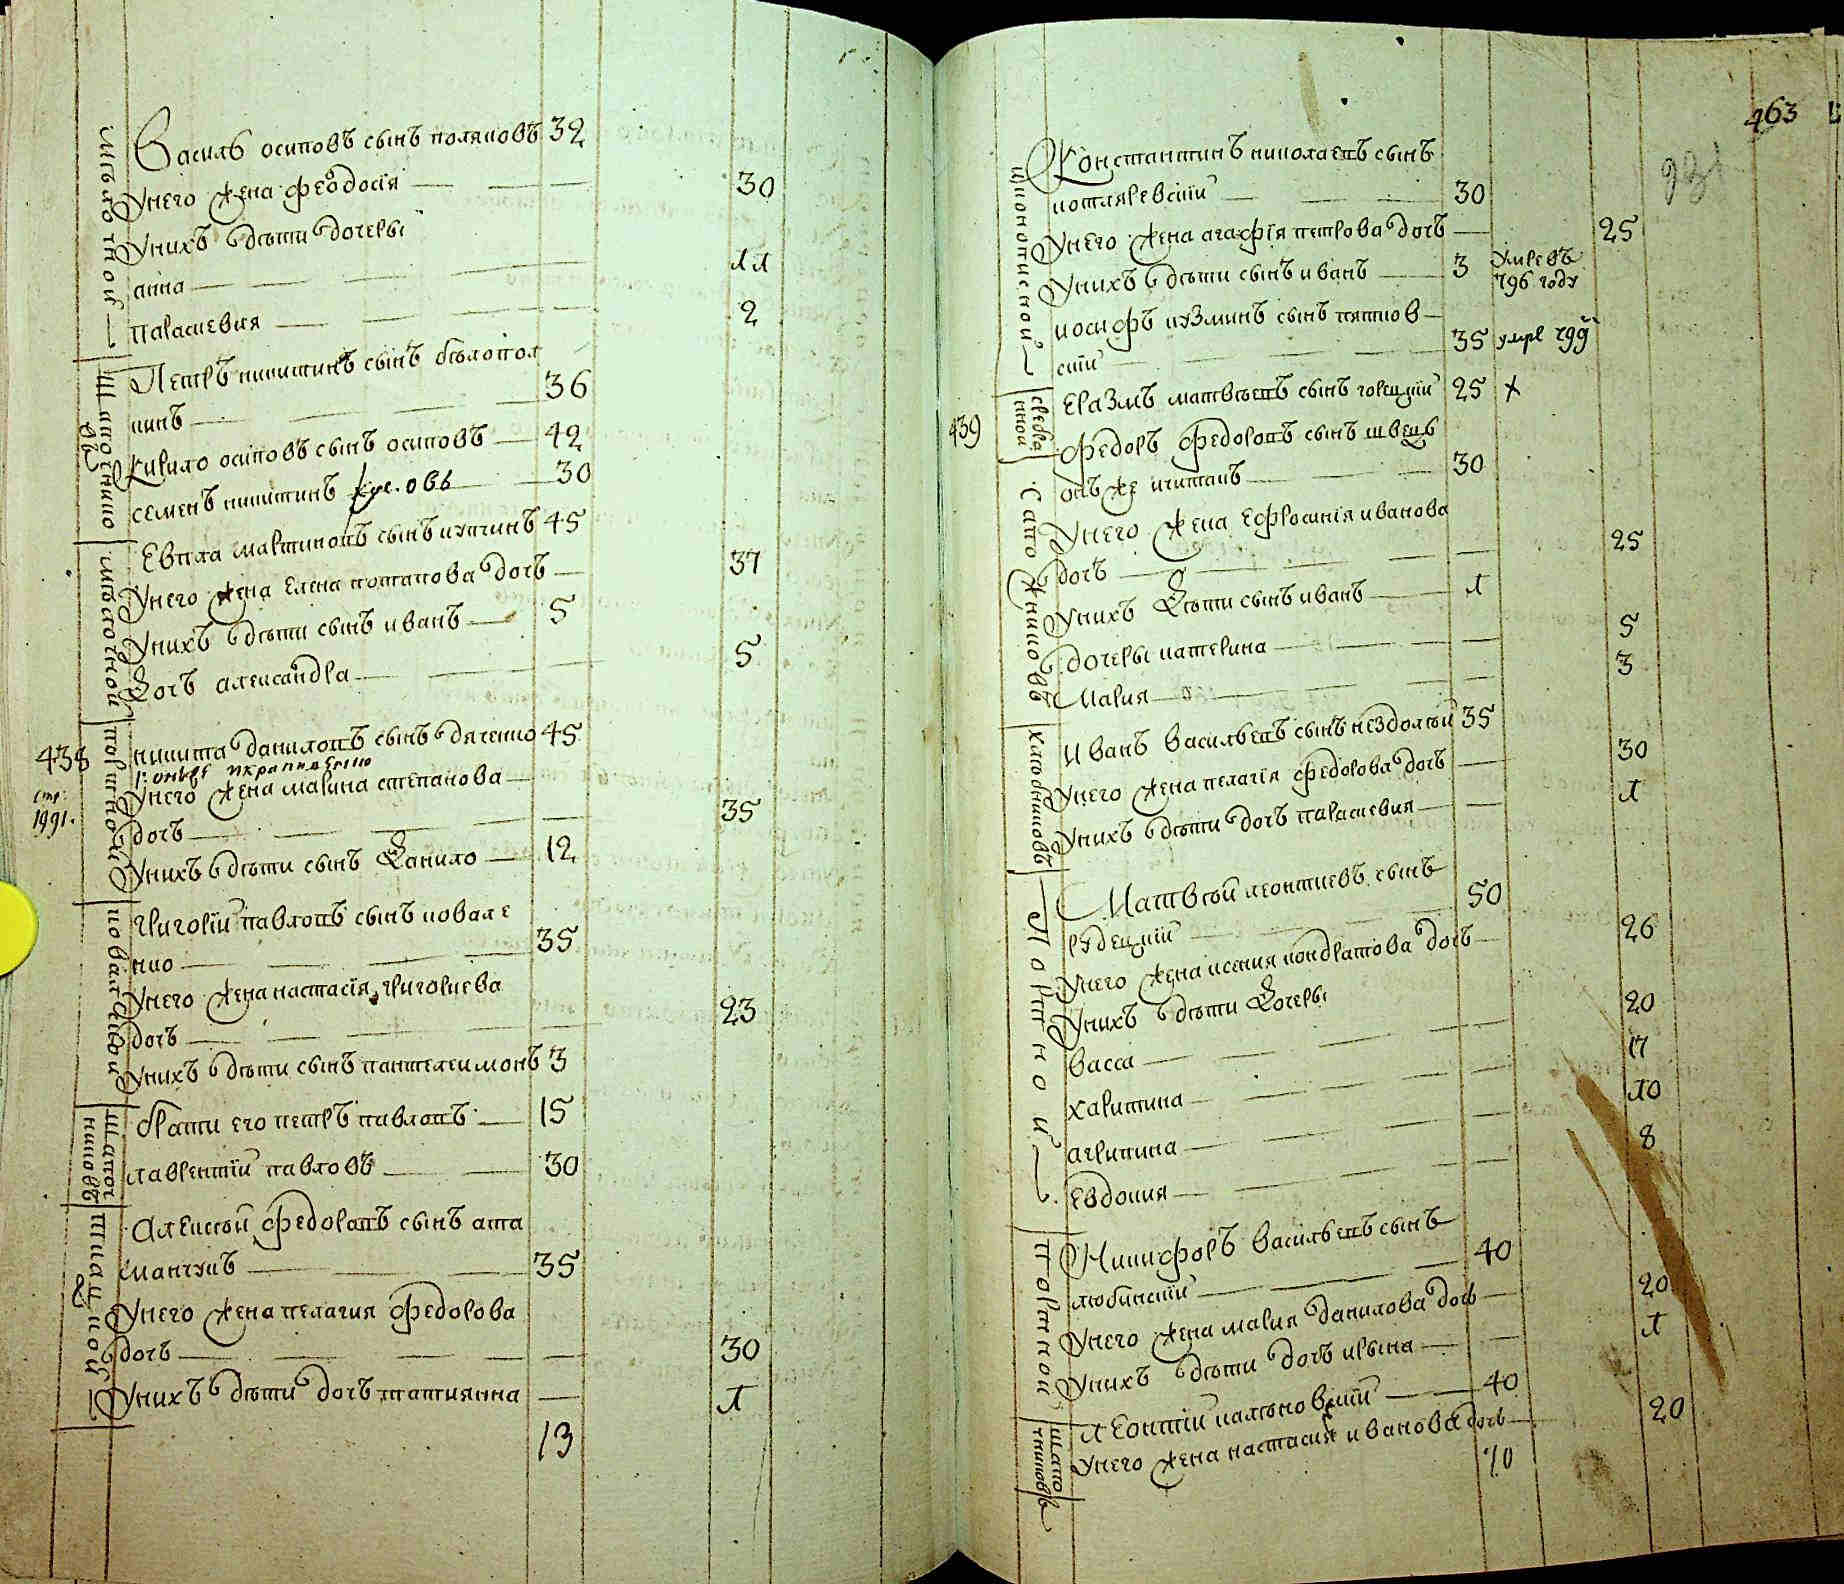 Василь осиповъ сынъ поляковъ 32
Унего жена феодосія 30
Унихъ дѣти дочеры
анна 11
параскевия 2
Петръ никитинъ сынъ бѣлопол
кинъ 36
Кирило осиповъ сынъ осиповъ 42
семенъ никитинъ 30
Евпла мартиновъ сынъ купчинъ 45
Унего жена елена потапова дочь 37
Унихъ дѣти сынъ иванъ 5
Дочь александра 5
438
никита даниловъ сынъ дяченко 45
Унего жена марина степанова
стр:
1991.
дочь 35
Унихъ дѣти сынъ Данило 12
григорій павловъ сынъ ковале
нко 35
Унего жена настасія григориева
дочь 23
Унихъ дѣти сынъ пантелеимонъ 3
брати его петръ павловъ 15
лаврентій павловъ 30
Алексѣй федоровъ сынъ ата
манчукъ 35
Унего жена пелагия федорова
дочь 30
Унихъ дѣти дочь татиянна 1
13
463
931
Иконописной
Константинъ николаевъ сынъ
котляревскій 30
Унего жена агафія петрова дочь 25
Унихъ дѣти сынъ иванъ 3 умре въ
796 году
иосифъ кузминъ сынъ пятков
скій 35 умре 799
439
Еразмъ матвѣевъ сынъ горецкій 25 х
федоръ федоровъ сынъ швецъ
онъ же 30
Сапожниковъ
Унего жена ефросинія иванова
дочь 25
Унихъ дѣти сынъ иванъ 1
дочеры катерина 5
Мария 3
Иванъ Васильевъ сынъ нездолгій 35
Унего жена пелагія федорова дочь 30
Унихъ дѣти дочь параскевия 1
Портной
Матвѣй леонтиевъ сынъ
рудецкій 50
Унего жена ксения кондратова дочь 26
Унихъ дѣти Дочеры
васса 20
харитина 17
агрипина 10
Евдокия 8
Портной
Никифоръ Васильевъ сынъ
любинскій 40
Унего жена мария данилова дочь 20
Унихъ дѣти дочь ирына 1
Леонтій 40
Унего жена настасия иванова дочь 20
10